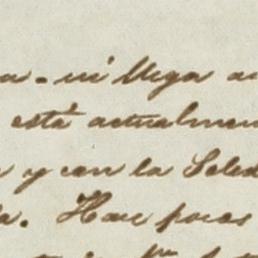 a - ni llega a
está actualmen
y con la Soled
a. Hace pocas